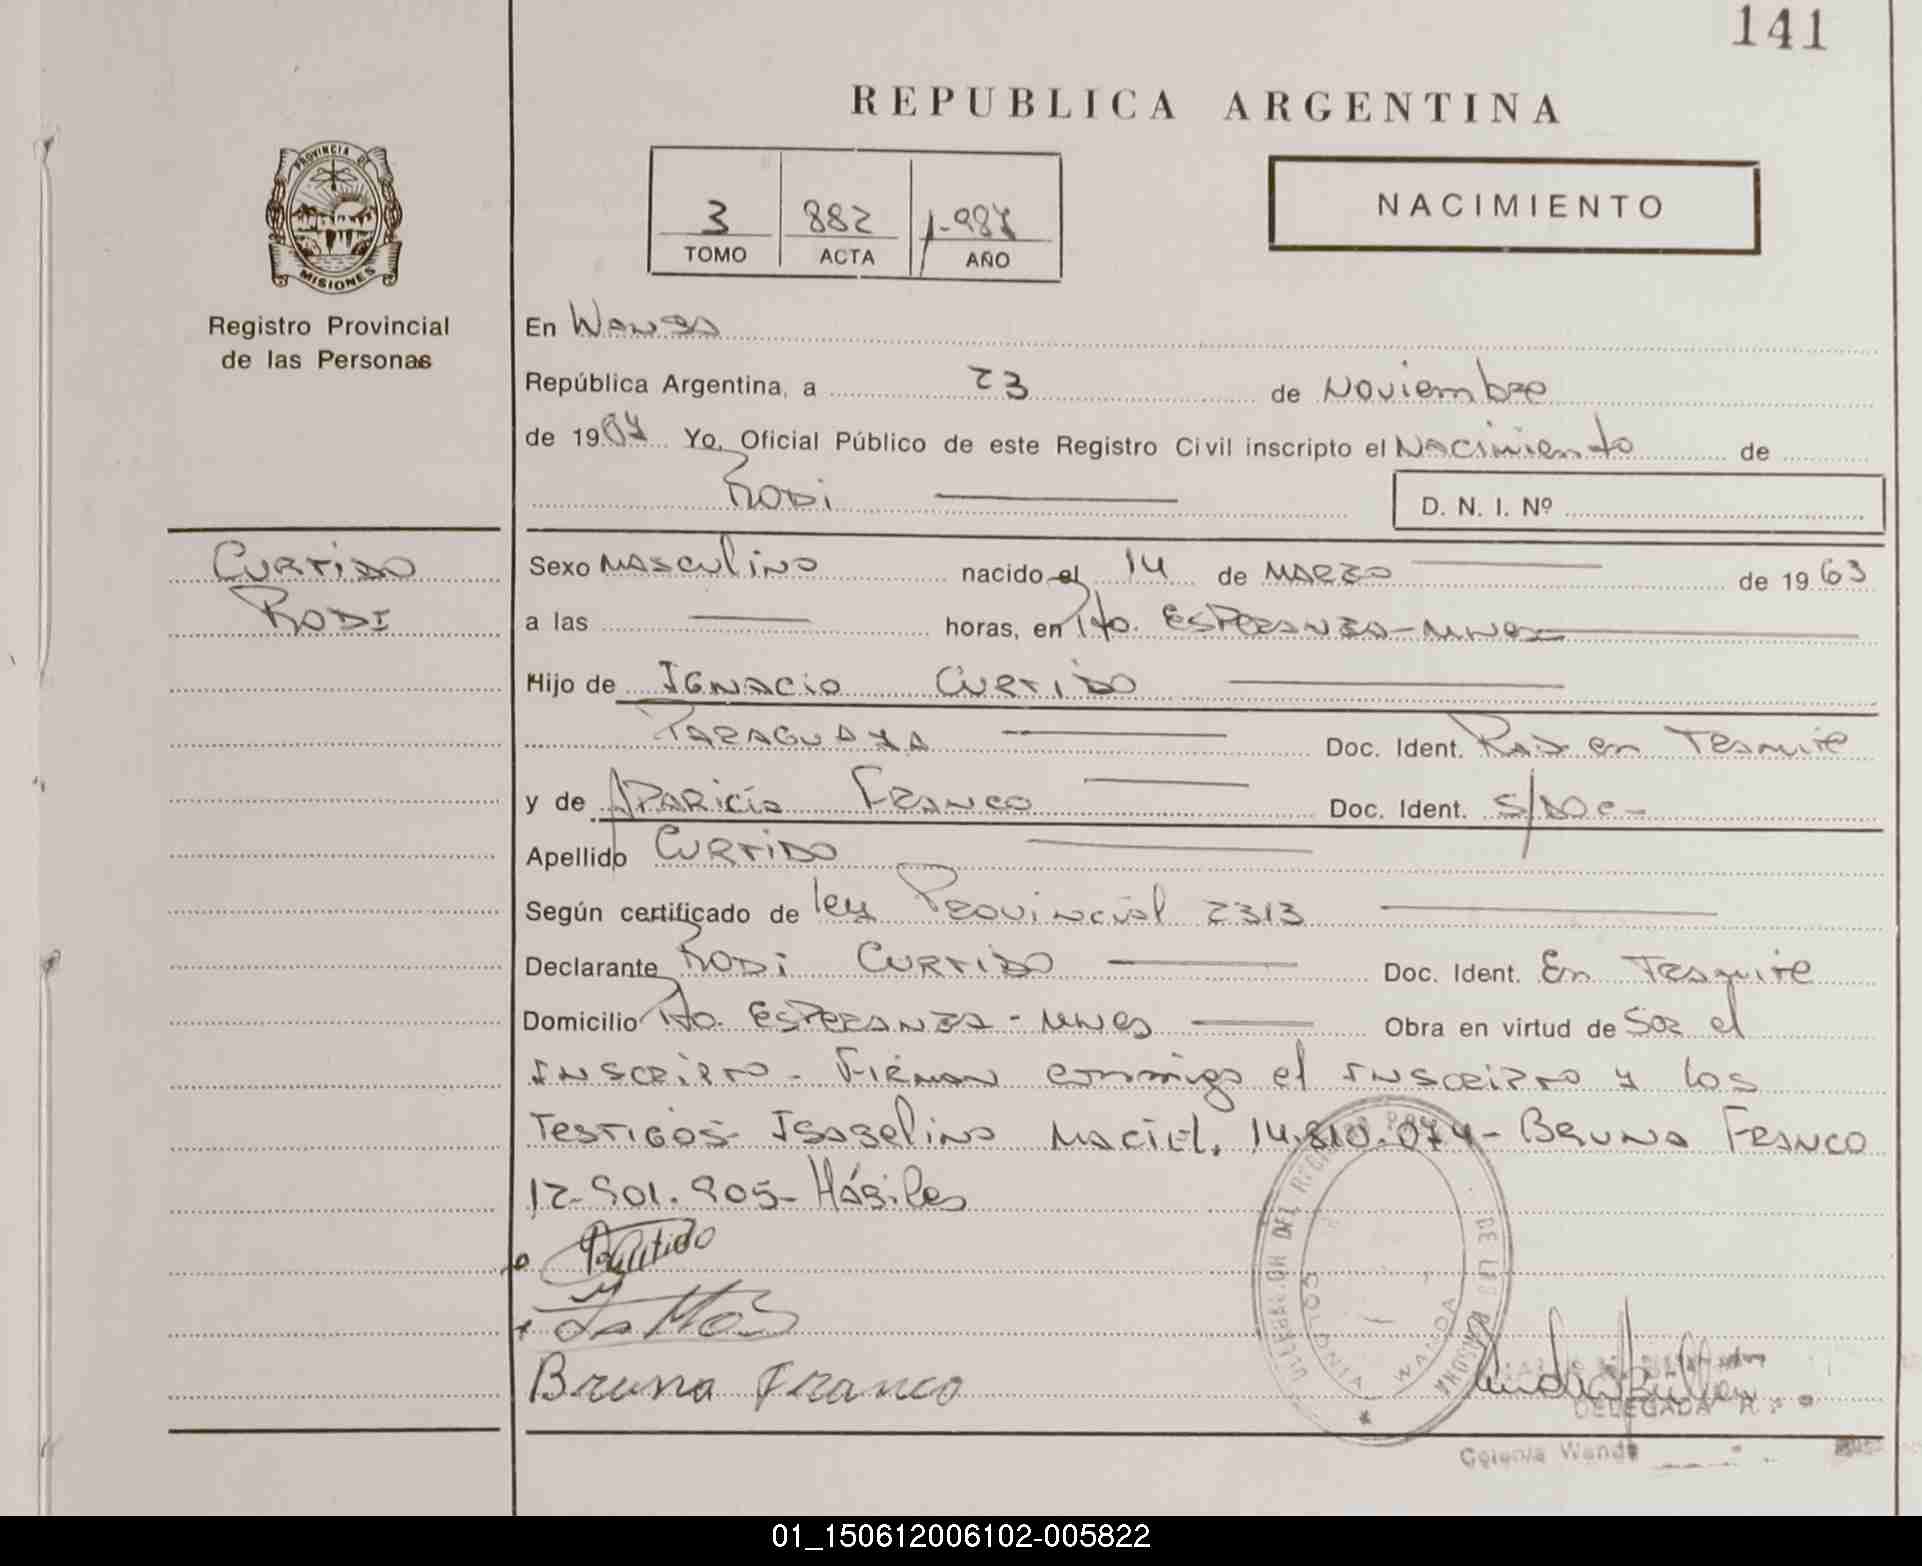 141
REPUBLICA ARGENTINA
PROVINCIA DE
MISIONES
Registro Provincial
de las Personas
3 882 1.987
TOMO ACTA AÑO
NACIMIENTO
En Wanda
República Argentina, a 23 de Noviembre
de 1987 Yo, Oficial Público de este Registro Civil inscripto el Nacimiento de
Rodi
D. N. I. Nº
Curtido
Rodi
Sexo Masculino nacido el 14 de Marzo de 1963
a las horas, en Pto. Esperanza - Mnes
Hijo de Ignacio Curtido
Paraguaya Doc. Ident. Rad. en Tramite
y de Aparicia Franco Doc. Ident. S/Doc-
Apellido Curtido
Según certificado de ley Provincial 2313
Declarante Rodi Curtido Doc. Ident. En Tramite
Domicilio Pto. Esperanza - Mnes Obra en virtud de Ser el
Inscripto - Firman conmigo el Inscripto y los
Testigos - Isabelino Maciel. 14.810.074 - Bruna Franco
12.901.905 - Hábiles
Bruna Franco
WANDA
DELEGADA
Colonia Wanda
01_150612006102-005822